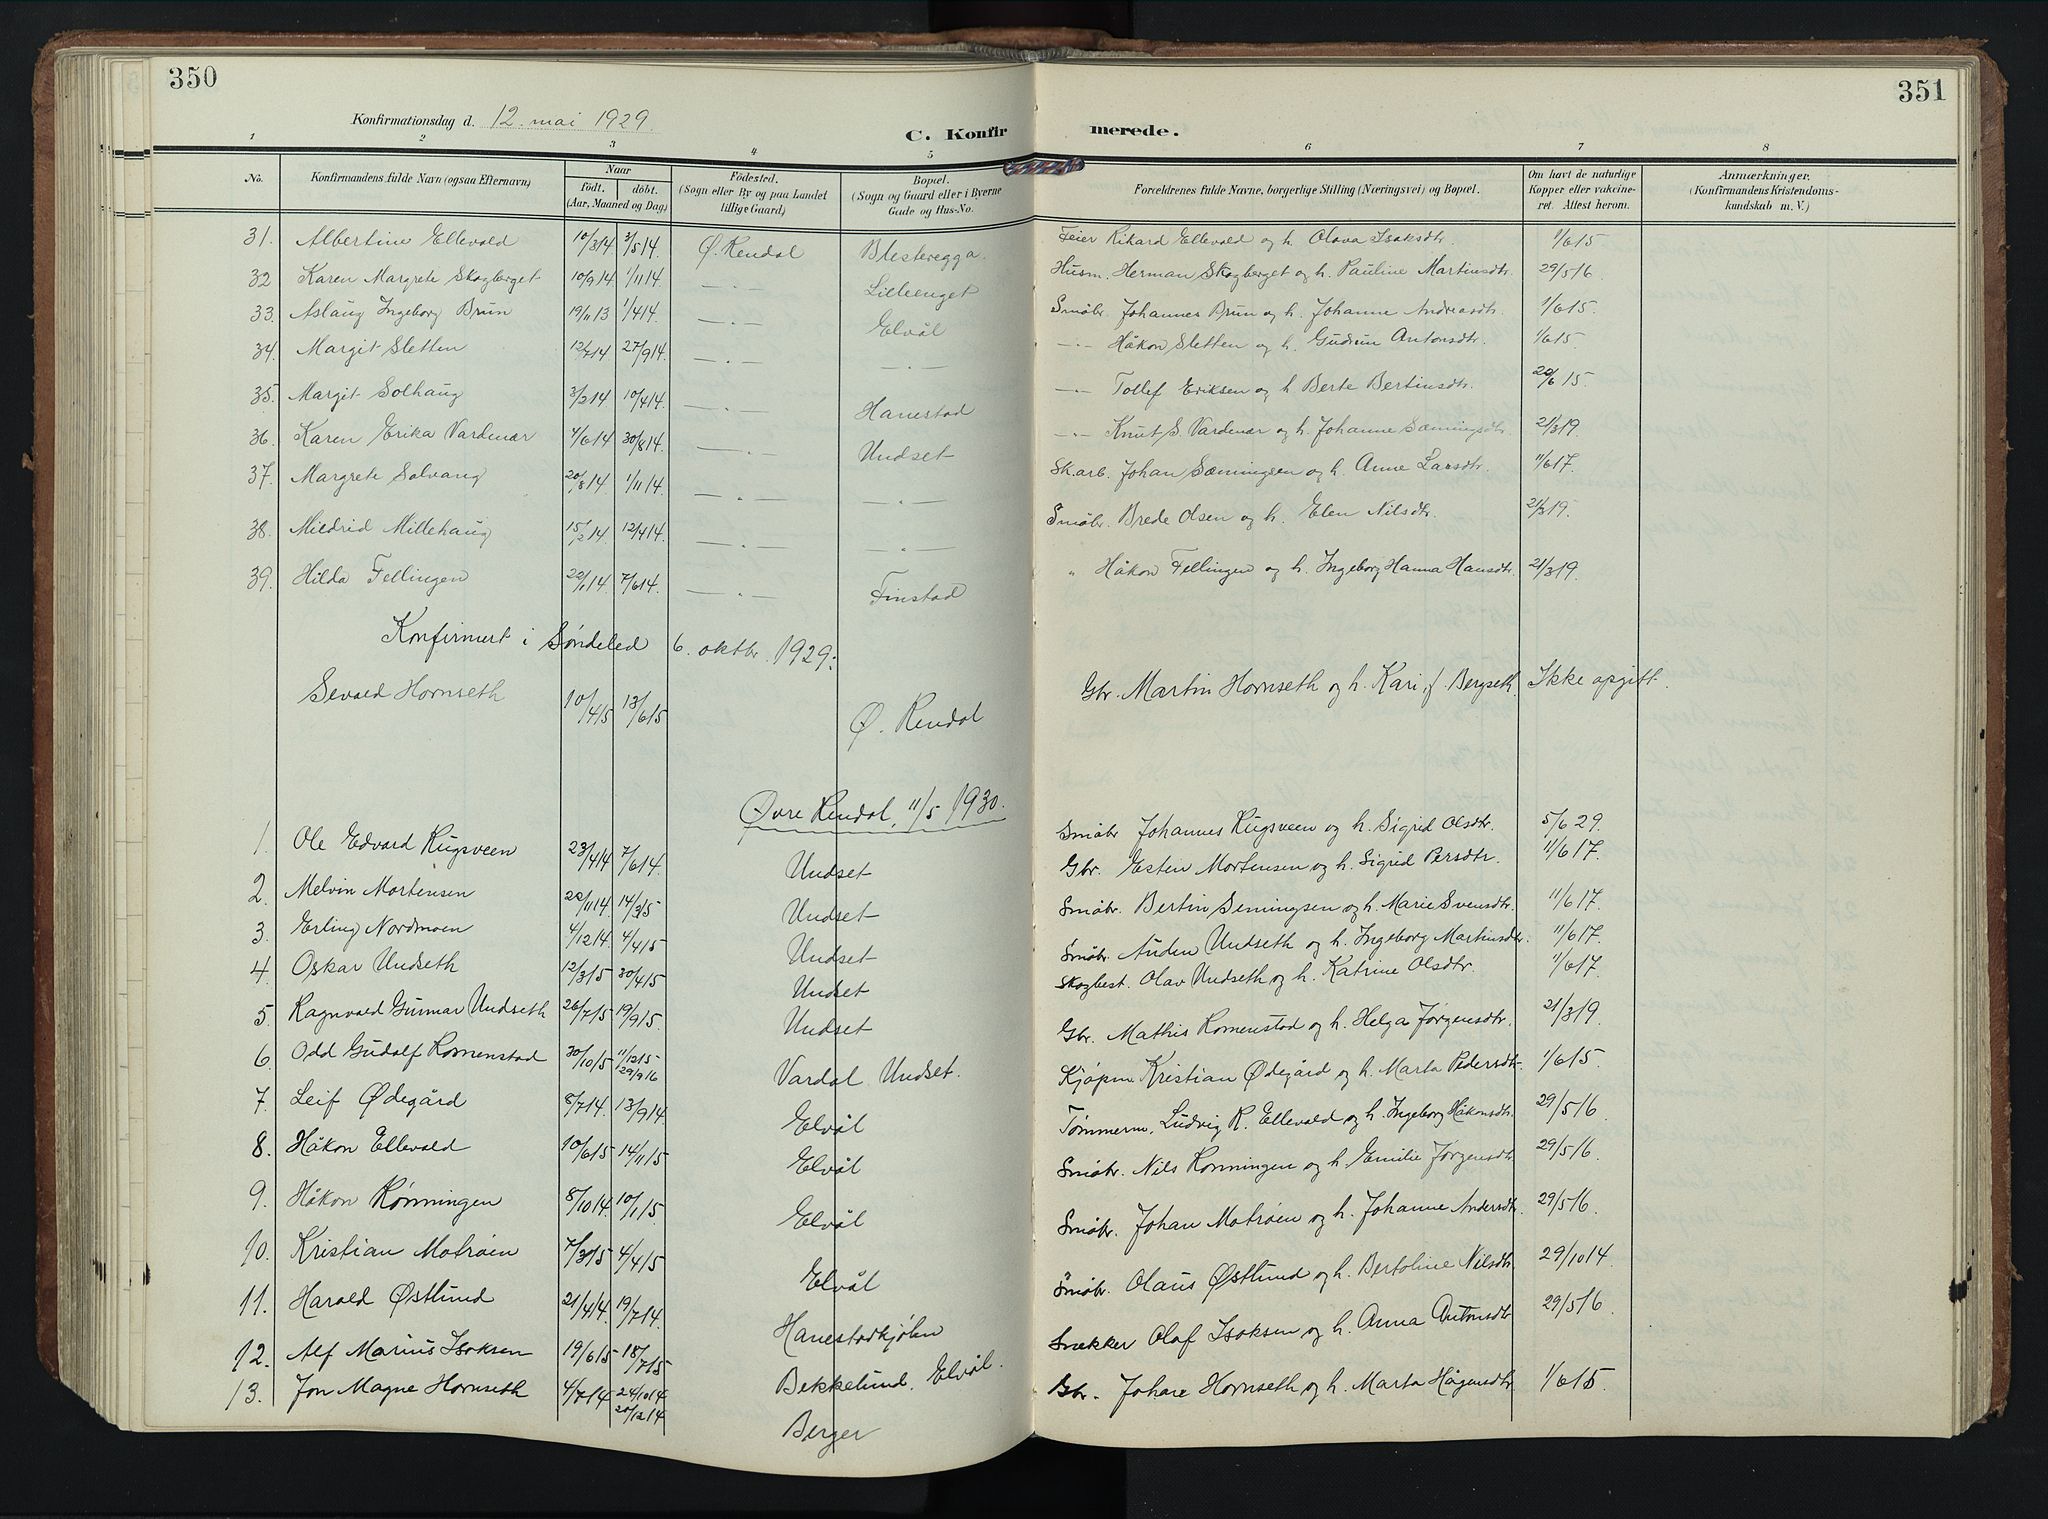 350
351
Konfirmationsdag d. 12. mai 1929.
C. Konfirmerede.
1 2 3 4 5 6 7 8
No. Konfirmandens fulde Navn (ogsaa Efternavn) Naar födt. döbt. (Aar, Maaned og Dag) Födested. (Sogn eller By og paa Landet tillige Gaard) Bopæl. (Sogn og Gaard eller i Byerne Gade og Hus-No. Forældrenes fulde Navne, borgerlige Stilling (Næringsvei) og Bopæl. Om havt de naturlige Kopper eller vakcineret. Attest herom. Anmærkninger. (Konfirmandens Kristendomskundskab m. V.)
31. Albertine Ellevold 10/3 14 3/5 14. Ø. Rendal Blesteregga. Feier Rikard Ellevold og h. Olava Isaksdtr. 1/6 15
32 Karen Margrete Skogberget 10/9 14 1/11 14. — . — Lilleenget Husm. Herman Skogberget og h. Pauline Martinsdtr. 29/5 16.
33. Aslaug Ingeborg Brun 19/11 13 1/4 14. — . — Elvål Småbr. Johannes Brun og h. Johanne Andreasdtr. 1/6 15.
34. Margit Sletten 12/7 14 27/9 14. — . — — . — — . — Håkon Sletten og h. Gudrun Antonsdtr. 1/6 15.
35. Margit Solhaug 3/2 14 10/4 14. — . — Hanestad — . — Tollef Eriksen og h. Berte Bertinsdtr. 20/6 15.
36. Karen Erika Vardenær 7/6 14 30/8 14. — . — Undset — . — Knut S. Vardenær og h. Johanne Sæmingsdtr. 21/3 19.
37. Margrete Solvang 20/8 14 1/11 14. — . — — . — Sk.arb. Johan Sæmingsen og h. Anne Larsdtr. 11/6 17.
38. Mildrid Millehaug 15/2 14. 12/4 14. — . — — . — Småbr. Brede Olsen og h. Elen Nilsdtr. 21/3 19.
39. Hilda Fellingen 22/1 14. 7/6 14. — . — Finstad " Håkon Fellingen og h. Ingeborg Hanna Hansdtr. 21/3 19.
Konfirmert i Søndeled 6. oktbr. 1929:
Sevald Hornseth 10/4 15 13/6 15 Ø. Rendal Gbr. Martin Hornseth og h. Kari, f. Bergseth. Ikke opgitt.
Øvre Rendal, 11/5 1930.
1. Ole Edvard Rugsveen 23/4 14 7/6 14. Undset Småbr Johannes Rugsveen og h. Sigrid Olsdtr. 5/6 29.
2. Melvin Mortensen 22/11 14. 14/3 15 Undset Gbr. Esten Mortensen og h. Sigrid Persdtr. 11/6 17.
3. Erling Nordmoen 4/12 14. 4/4 15 Undset Småbr. Bertin Semingsen og h. Marie Svensdtr. 11/6 17.
4 Oskar Undseth 12/3 15 30/4 15 Undset Småbr. Auden Undseth og h. Ingeborg Martinsdtr. 11/6 17.
5. Ragnvald Gunnar Undseth 26/7 15 19/9 15. Undset Skogbest. Olav Undseth og h. Katrine Olsdtr. 11/6 17.
6. Odd Gudolf Romenstad 30/10 15 11/12 15 29/9 16 Vardal Undset. Gbr. Mathis Romenstad og h. Helga Jørgensdtr. 21/3 19.
7. Leif Ødegård 8/7 14. 13/9 14. Elvål Kjøpm. Kristian Ødegård og h. Marta Pedersdtr. 1/6 15.
8. Håkon Ellevold 10/6 15 14/11 15 Elvål Tømmerm. Ludvig R. Ellevold og h. Ingeborg Håkonsdtr. 29/5 16.
9. Håkon Rønningen 8/10 14. 10/1 15. Elvål Småbr. Nils Rønningen og h. Emilie Jørgensdtr. 29/5 16.
10. Kristian Motrøen 7/3 15 4/4 15 Elvål Småbr. Johan Motrøen og h. Johanne Andersdtr 29/5 16.
11. Harald Østlund 21/4 14. 19/7 14. Hanestadkjølen Småbr. Olaus Østlund og h. Bertoline Nilsdtr. 29/10 14.
12. Alf Marius Isaksen 19/6 15 18/7 15 Bekkelund, Elvål. Snekker Olaf Isaksen og h. Anna Antonsdtr 29/5 16.
13. Jon Magne Hornseth 4/7 14 24/10 14 20/12 14 Berger Gbr. Johan Hornseth og h. Marta Hågensdtr. 1/6 15.